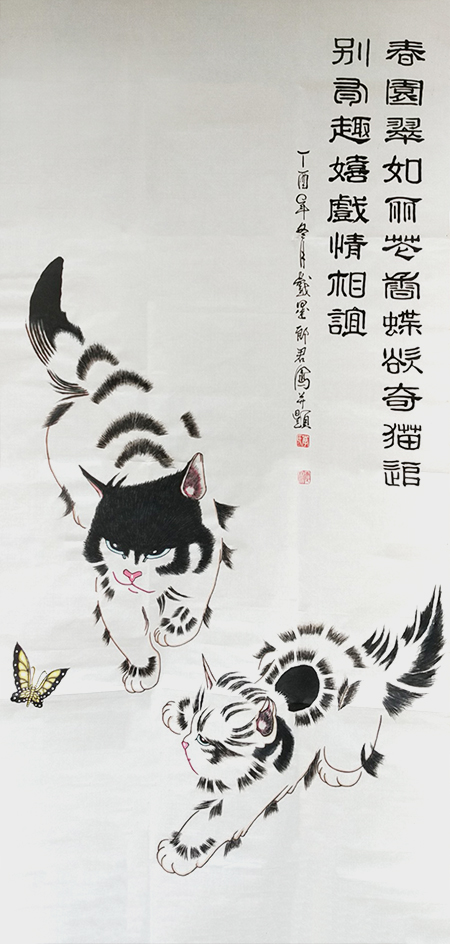 春園翠如雨花香蝶欲奇猫追
別有趣嬉戲情相誼
丁酉年冬月戴君寫并題